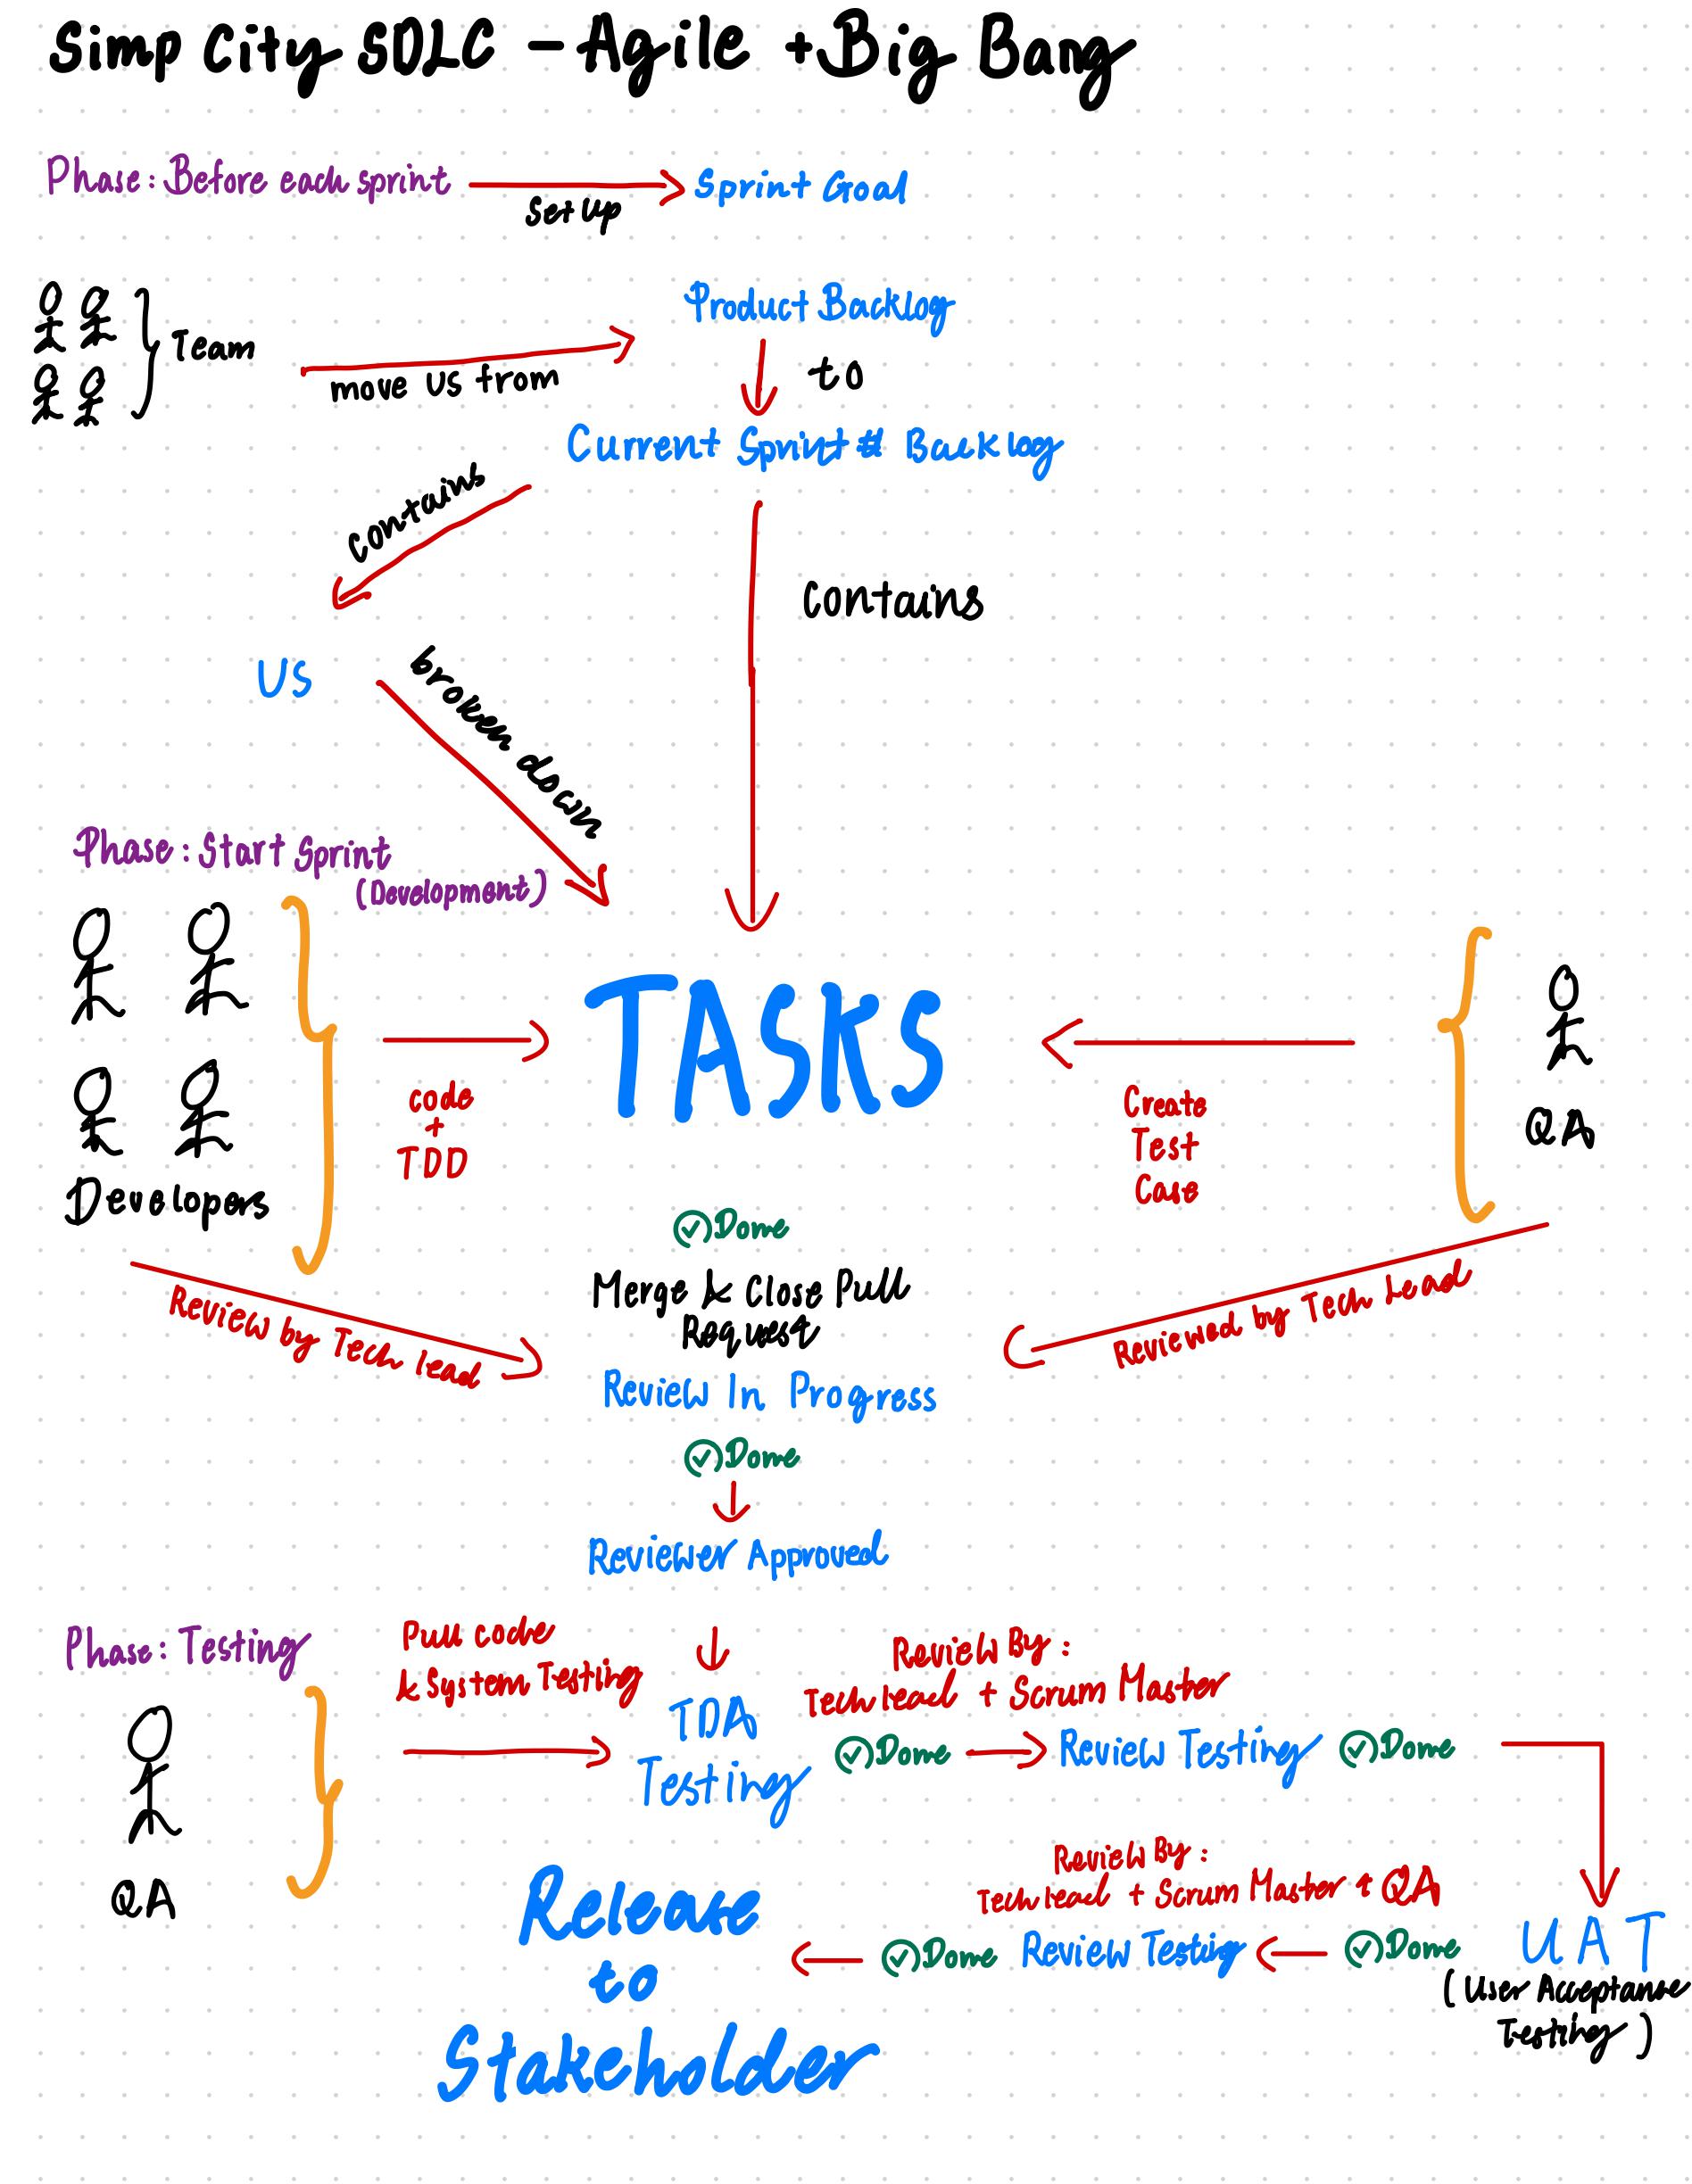 Simp City SDLC - Agile + Big Bang
Phase: Before each sprint
set up
Sprint Goal
Team
move US from
Product Backlog
to
Current Sprint # Backlog
contains
contains
US
broken down
Phase: Start Sprint
(Development)
Developers
code
+
TDD
TASKS
Create
Test
Case
QA
Done
Merge & Close Pull
Request
Review by Tech lead
Reviewed by Tech Lead
Review In Progress
Done
Reviewer Approved
Phase: Testing
QA
Pull code
& System Testing
TDA
Testing
Review By:
Tech lead + Scrum Master
Done
Review Testing
Done
UAT
(User Acceptance
Testing)
Done
Review By:
Tech lead + Scrum Master + QA
Review Testing
Done
Release
to
Stakeholder